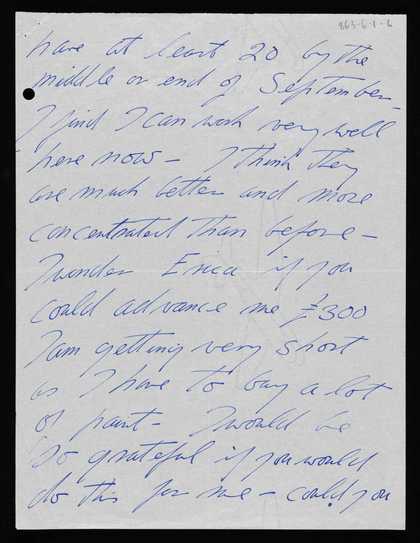 863-6-1-6
have at least 20 by the
middle or end of September -
I find I can work very well
here now - I think they
are much better and more
concentrated than before -
I wonder Erica if you
could advance me £300
I am getting very short
as I have to buy a lot
of paint - I would be
so grateful if you would
do this for me - could you